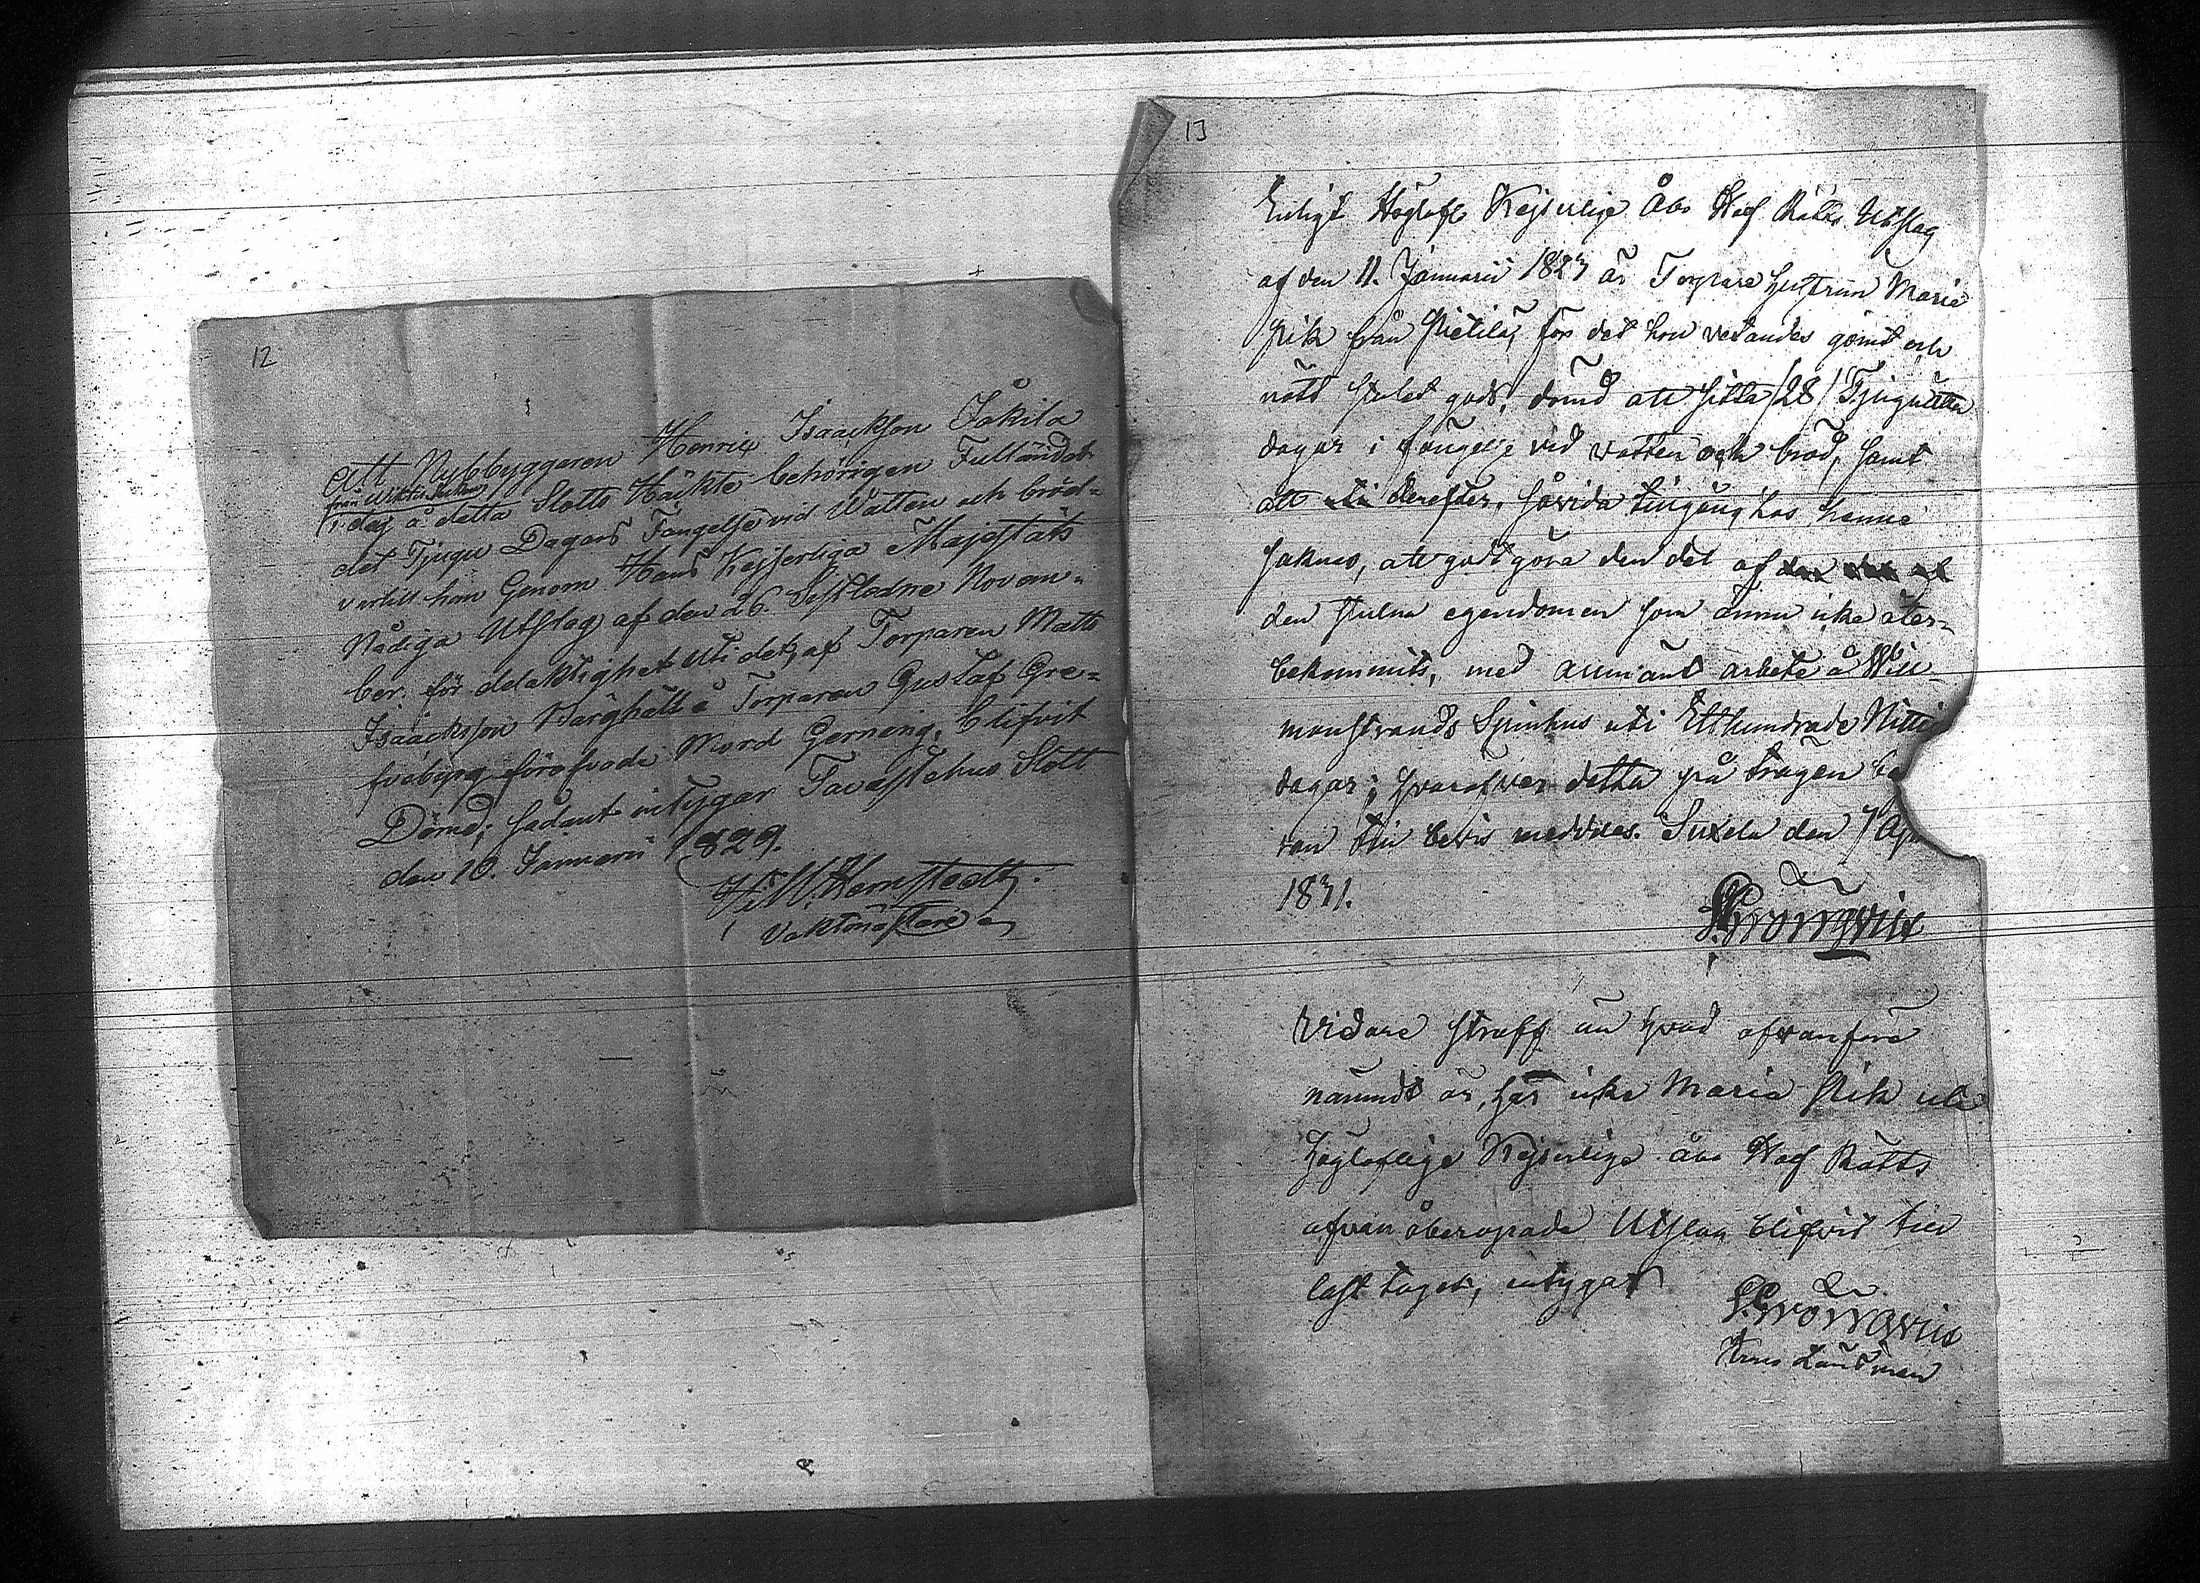 12
Att Nybbyggaren Henric Isaacksson Jåkila
från
i dag å detta Slotts Häkte behörigen Fulländat
det Tjugu Dagars Fängelse vid Watten och bröd=
vartill han Genom Hans Kejserliga Majestäts
Nådiga Utslag af den 26. Sistledne Novem=
ber. för delaktighet uti det, af Torparen Matts
Isaacksson å Torparen Gustaf Gre=
föröfvade Mord Gerning, blifvit
Dömd; sådant intygar Tavastehus Slott
den 10. Januarii 1829.
Vaktmästare
13
Enligt Höglofl Kejserlige Åbo Hof Rätts Utslag
af den 11. Januarii 1823 är Torpare hustrun Maria
från Pietilä, för det hon vetandes gömt och
nött stulet gods, dömd att sitta /28/ Tjuguåtta
dagar i fängelse vid vatten och bröd, samt
att derefter, såvida tillgång hos henne
saknas, att godtgöra den del af
den stulna egendomen som ännu icke åter=
bekommits, med allmänt arbete å Will=
manstrands Spinhus uti Etthundrade Nittio
dagar; hvarofver detta på trägen be
ran till bevis meddelas. Suxela den 7 Apr
1831.
Vidare straff än hvad ofvanföre
nämndt är, har icke Maria uti
Höglofliga Kejserlige Åbo Hof Rätts
ofvan åberopade Utslag blifvit till
last taget, intygar
Länsman